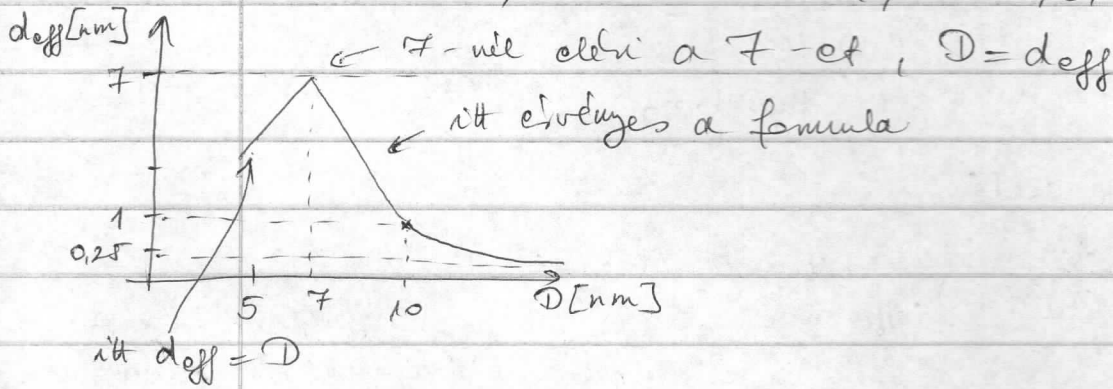 d_eff [nm]
7-nél eléri a 7-et, D = d_eff
7
itt érvényes a formula
1
0,25
5 7 10 D [nm]
itt d_eff = D